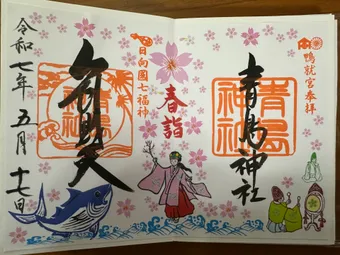 鴨就宮奉拝
青島神社
青島
神社
春詣
日向國七福神
弁財天
令和七年五月十七日